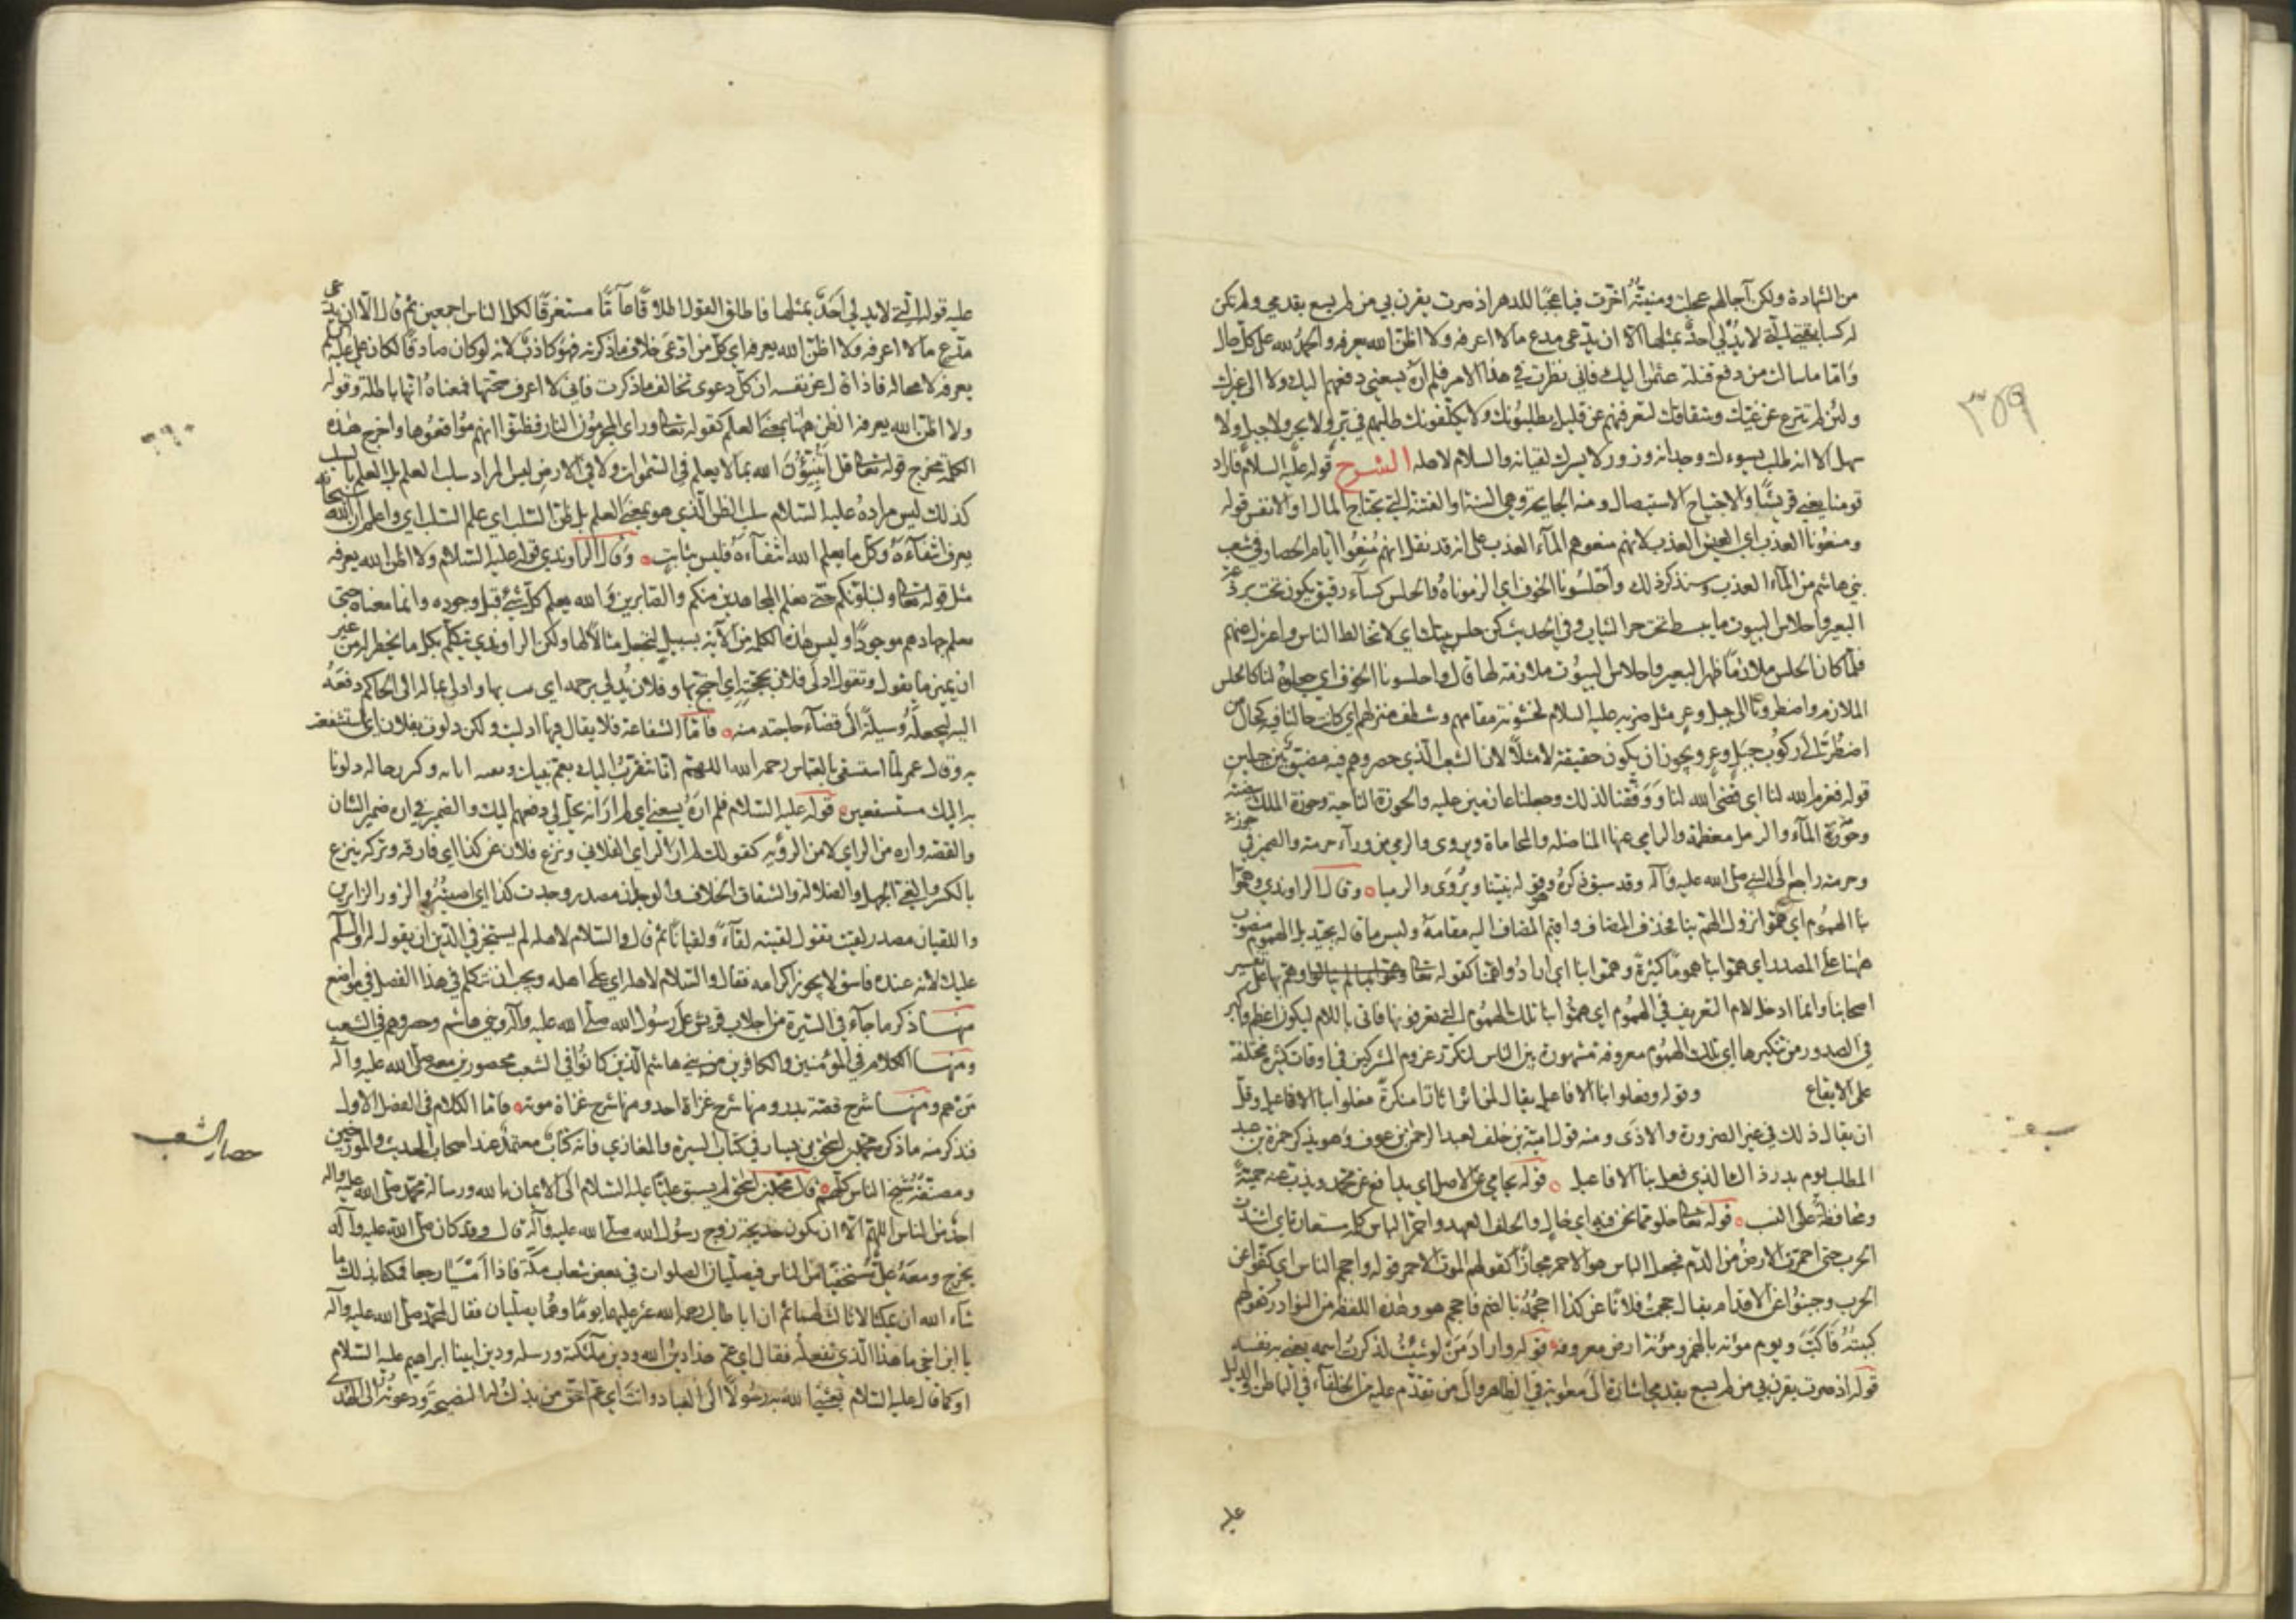 ٣٥٩
من الشهادة ولكن آجالهم عجلت ومنيته اخرت فيا عجبا للدهر اذ صرت يقرن بي من لم يسع بقدمي ولم تكن
له كسابقتي التي لا يدلي احد بمثلها الا ان يدعي مدع ما لا اعرفه ولا اظن الله يعرفه والحمد لله على كل حال
واما ما سالت من دفع قتلة عثمن اليك فاني نظرت في هذا الامر فلم اره يسعني دفعهم اليك ولا الى غيرك
ولئن لم تنزع عن غيك وشقاقك لتعرفنهم عن قليل يطلبونك ولا يكلفونك طلبهم في بر ولا بحر ولا جبل ولا
سهل الا انه طلب يسوءك وجدانه وزور لا يسرك لقيانه والسلام لاهله الشرح قوله عليه السلام فاراد
قومنا يعني قريشا والاجتياح الاستيصال ومنه الجايحة وهي السنة او الفتنة التي تجتاح المال او الانفس قوله
ومنعونا العذب اي العيش العذب لا انهم منعوهم الماء العذب على انه قد نقل انهم منعوا ايام الحصار في شعب
بني هاشم من الماء العذب وسنذكر ذلك واحلسونا الخوف اي الزموناه والحلس كساء رقيق يكون تحت برذعة
البعير واحلاس البيوت ما يبسط تحت حر الثياب وفي الحديث كن حلس بيتك اي لا تخالط الناس واعتزل عنهم
فلما كان الحلس ملازما ظهر البعير واحلاس البيوت ملازمة لها قال واحلسونا الخوف اي جعلوه لنا كالحلس
الملازم واضطرونا الى جبل وعر مثل ضربه عليه السلام لخشونة مقامهم وشظف منزلهم اي كانت حالنا فيه كحال من
اضطر الى ركوب جبل وعر ويجوز ان يكون حقيقة لا مثلا لان الشعب الذي حصروهم فيه مضيق بين جبلين
قوله فعزم الله لنا اي قضى الله لنا ووفقنا لذلك وجعلنا عازمين عليه والحوزة الناحية وحوزة الملك بيضته
وحومة الماء والرمل معظمه والرامي عنها المناضل والمحاماة ويروى والرمي من وراء حرمته والضمير في
وحرمته راجع الى النبي صلى الله عليه وآله وقد سبق ذكره وهو قوله نبينا ويروى والرميا وقال الراوندي وهموا
بنا الهموم اي هموا نزول الهم بنا فحذف المضاف واقيم المضاف اليه مقامه وليس ما قاله بجيد بل الهموم منصوب
ههنا على المصدر اي هموا بنا هموما كثيرة وهموا بنا اي ارادوا همنا كقوله تعالى وهم بها على تفسير
اصحابنا وانما ادخل لام التعريف في الهموم اي هموا بنا تلك الهموم التي تعرفونها فاتى باللام ليكون اعظم واكبر
في الصدور من تنكيرها اي تلك الهموم معروفة مشهورة بين الناس لتكرر عزوم المشركين في اوقات كثيرة مختلفة
على الايقاع وقوله وفعلوا بنا الافاعيل يقال لمن اثر اثارا منكرة فعلوا بنا الافاعيل وقل
ان يقال ذلك في غير الضرورة والاذى ومنه قول امية بن خلف لعبد الرحمن بن عوف وهو يذكر حمزة بن عبد
المطلب يوم بدر ذاك الذي فعل بنا الافاعيل قوله يحامي عن الاصل اي يدافع عن محمد ويذب عنه حمية
ومحافظة على النسب قوله خلو مما نحن فيه اي خال والحلف العهد واحمر الباس كلمة مستعارة اي اشتدت
الحرب حتى احمرت الارض من الدم فجعل الباس هو الاحمر مجازا كقولهم الموت الاحمر قوله واحجم الناس اي كفوا عن
الحرب وجبنوا عن الاقدام يقال حجمت فلانا عن كذا احجمه بالضم فاحجم هو وهذه اللفظة من النوادر كقولهم
كببته فاكب ويوم مؤته بالهمز ومؤته ارض معروفه قوله واراد من لو شئت لذكرت اسمه يعني به نفسه
قوله اذ صرت يقرن بي من لم يسع بقدمي اشارة الى معوية في الظاهر والى من تقدم عليه من الخلفاء في الباطن والدليل
عليه
عليه قوله التي لا يدلي احد بمثلها فاطلق القول اطلاقا عاما مستغرقا لكل الناس اجمعين ثم قال الا ان يدعي
مدع ما لا اعرفه ولا اظن الله يعرفه اي كل من ادعى خلاف ما ذكرته فهو كاذب لانه لو كان صادقا لكان علي عليه السلم
يعرفه لا محاله فاذا قال عن نفسه ان كل دعوى تخالف ما ذكرت فاني لا اعرف صحتها فمعناه انها باطلة وقوله
ولا اظن الله يعرفه الظن ههنا بمعنى العلم كقوله تعالى وراى المجرمون النار فظنوا انهم مواقعوها واخرج هذه
الكلمة مخرج قوله تعالى قل اتنبؤن الله بما لا يعلم في السموات ولا في الارض ليس المراد سلب العلم بل العلم بالسلب
كذلك ليس مراده عليه السلام سلب الظن الذي هو بمعنى العلم بل ظن السلب اي علم السلب اي واعلم ان الله سبحانه
يعرف انتفاءه وكل ما يعلم الله انتفاءه فليس بثابت وقال الراوندي قوله عليه السلام ولا اظن الله يعرفه
مثل قوله تعالى ولنبلونكم حتى نعلم المجاهدين منكم والصابرين والله يعلم كل شئ قبل وجوده وانما معناه حتى
نعلم جهادهم موجودا وليس هذه الكلمة من الآية بسبيل لتجعل مثالا لها ولكن الراوندي يتكلم بكل ما يخطر له من غير
ان يميز ما يقول وتقول ادلى فلان بحجته اي احتج بها وفلان يدلي برحمه اي يمت بها وادلى بماله الى الحاكم دفعه
اليه ليجعله وسيلة الى قضاء حاجته منه فاما الشفاعة فلا يقال فيها ادليت ولكن دلوت بفلان اي استشفعت
به وقال عمر لما استسقى بالعباس رحمه الله اللهم انا نتقرب اليك بعم نبيك وكبر رجاله دلونا
به اليك مستشفعين قوله عليه السلام فلم اره يسعني اي لم ار انه يحل لي دفعهم اليك والضمير في اره ضمير الشان
والقصه واره من الراي لا من الرؤيه كقولك لم ار الراي الفلاني ونزع فلان عن كذا اي فارقه وتركه ينزع
بالكسر والغي الجهل والضلالة والشقاق الخلاف والوجدان مصدر وجدت كذا اي اصبته والزور الزاير
واللقيان مصدر لقيت تقول لقيته لقاء ولقيانا ثم قال والسلام لاهله لم يستجز في الدين ان يقول له والسلم
عليك لانه عنده فاسق لا يجوز اكرامه فقال والسلام لاهله اي على اهله ويجب ان نتكلم في هذا الفصل في مواضع
منها ذكر ما جاء في السيرة من اجلاب قريش على رسول الله صلى الله عليه وآله وبني هاشم وحصرهم في الشعب
ومنها الكلام في المؤمنين والكافرين من بني هاشم الذين كانوا في الشعب محصورين معه صلى الله عليه وآله
من هم ومنها شرح قصة بدر ومنها شرح غزاة احد ومنها شرح غزاة موته فاما الكلام في الفصل الاول
فنذكر منه ما ذكره محمد بن اسحق بن يسار في كتاب السيرة والمغازي فانه كتاب معتمد عند اصحاب الحديث والمورخين
حصار الشعب
ومصنفه شيخ الناس كلهم قال محمد بن اسحق لم يسبق عليا عليه السلام الى الايمان بالله ورسالة محمد صلى الله عليه وآله
احد من الناس اللهم الا ان تكون خديجة زوج رسول الله صلى الله عليه وآله قال وقد كان صلى الله عليه وآله
يخرج ومعه علي مستخفيا من الناس فيصليان الصلوات في بعض شعاب مكة فاذا امسيا رجعا فمكثا بذلك ما
شاء الله ان يمكثا لا ثالث لهما ثم ان ابا طالب رحمه الله عثر عليهما يوما وهما يصليان فقال لمحمد صلى الله عليه وآله
يا ابن اخي ما هذا الذي تفعله فقال اي عم هذا دين الله ودين ملئكته ورسله ودين ابينا ابراهيم عليه السلام
او كما قال عليه السلام بعثني الله به رسولا الى العباد وانت اي عم احق من بذلت له النصيحة ودعوته الى الهدى